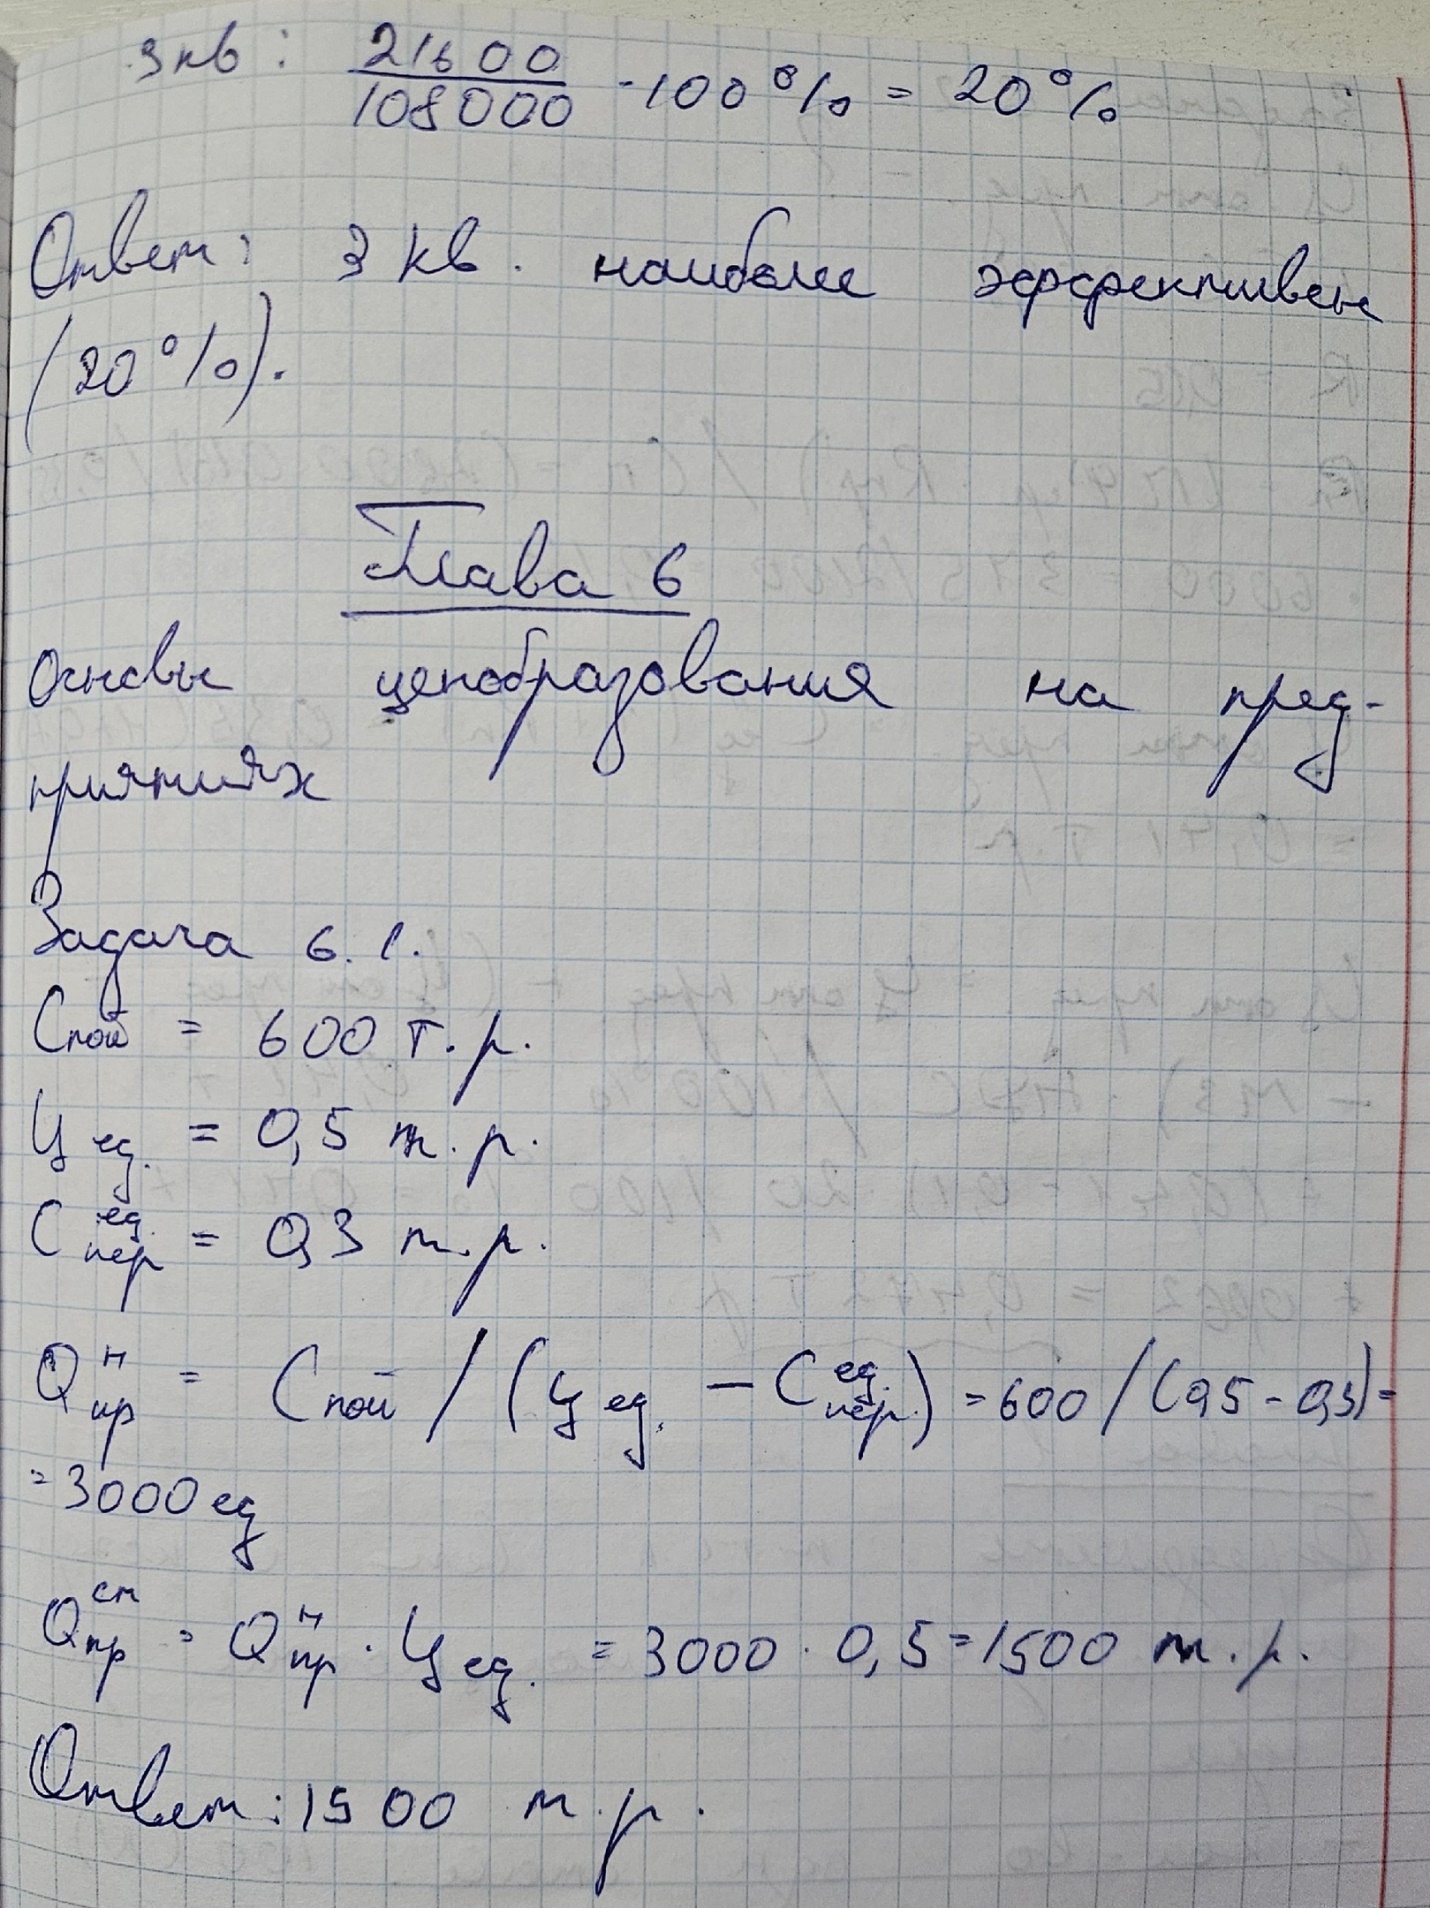 3 кв: 21600/108000 · 100% = 20%
Ответ: 3 кв. наиболее эффективен
(20%).
Глава 6
Основы ценобразования на пред-
приятиях
Задача 6.1.
Cпой = 600 т.р.
Цед. = 0,5 т.р.
Cпер^ед. = 0,3 т.р.
Qпр^н = Cпой / (Цед. − Cпер.^ед.) = 600 / (0,5 - 0,3) =
= 3000 ед
Qпр^ст = Qпр^н · Цед. = 3000 · 0,5 = 1500 т.р.
Ответ: 1500 т.р.